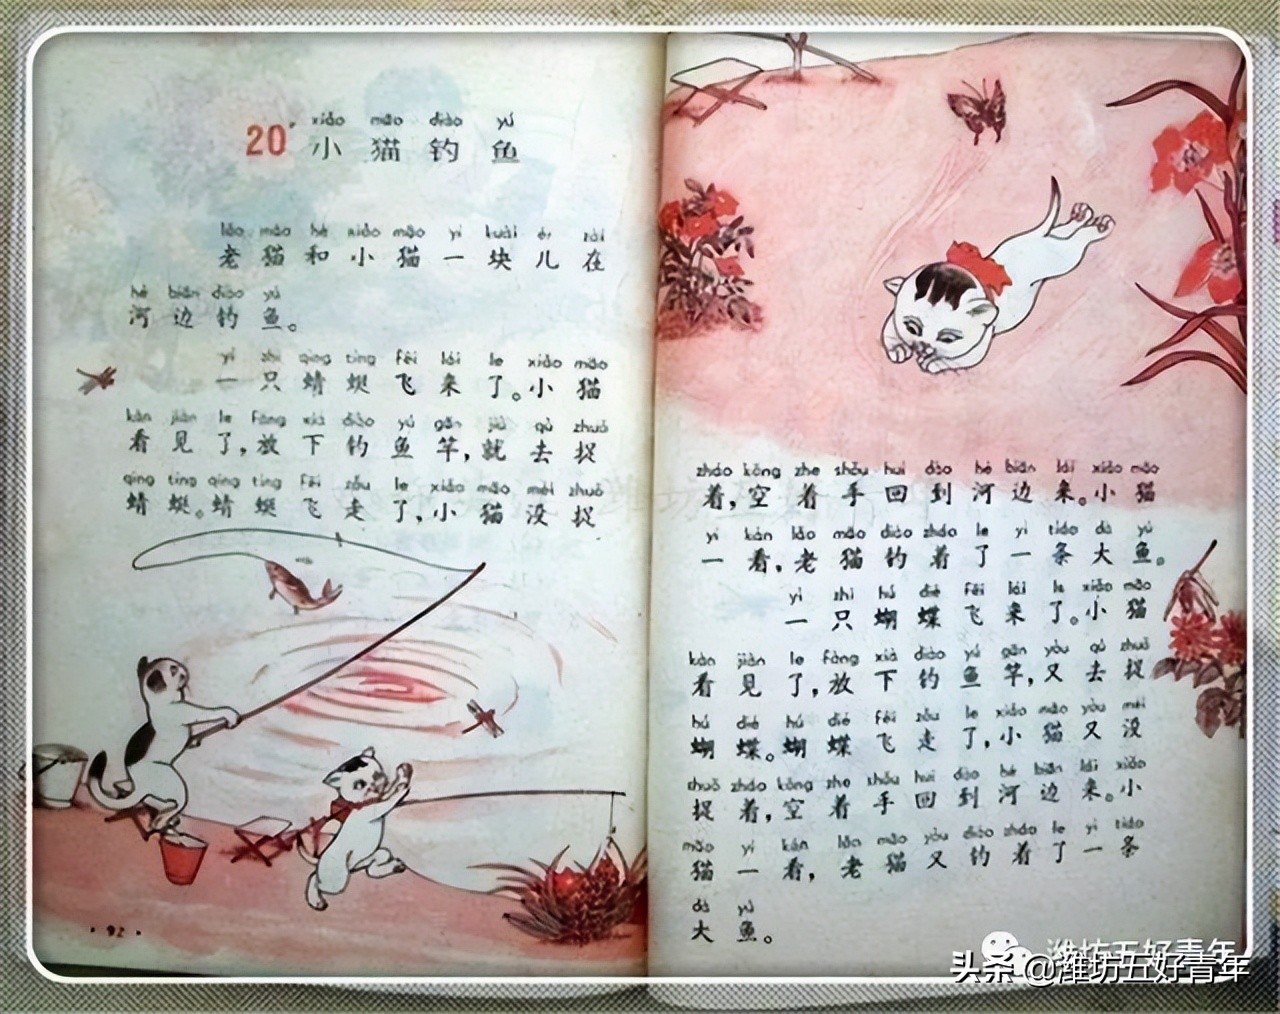 xiǎo māo diào yú
20* 小猫钓鱼
lǎo māo hé xiǎo māo yí kuài ér zài
老猫和小猫一块儿在
hé biān diào yú
河边钓鱼。
yì zhī qīng tíng fēi lái le xiǎo māo
一只蜻蜓飞来了。小猫
kàn jiàn le fàng xià diào yú gān jiù qù zhuō
看见了,放下钓鱼竿,就去捉
qīng tíng qīng tíng fēi zǒu le xiǎo māo méi zhuō
蜻蜓。蜻蜓飞走了,小猫没捉
·92·
zháo kōng zhe shǒu huí dào hé biān lái xiǎo māo
着,空着手回到河边来。小猫
yí kàn lǎo māo diào zháo le yì tiáo dà yú
一看,老猫钓着了一条大鱼。
yì zhī hú dié fēi lái le xiǎo māo
一只蝴蝶飞来了。小猫
kàn jiàn le fàng xià diào yú gān yòu qù zhuō
看见了,放下钓鱼竿,又去捉
hú dié hú dié fēi zǒu le xiǎo māo yòu méi
蝴蝶。蝴蝶飞走了,小猫又没
zhuō zháo kōng zhe shǒu huí dào hé biān lái xiǎo
捉着,空着手回到河边来。小
māo yí kàn lǎo māo yòu diào zháo le yì tiáo
猫一看,老猫又钓着了一条
dà yú
大鱼。
潍坊五好青年
头条 @潍坊五好青年